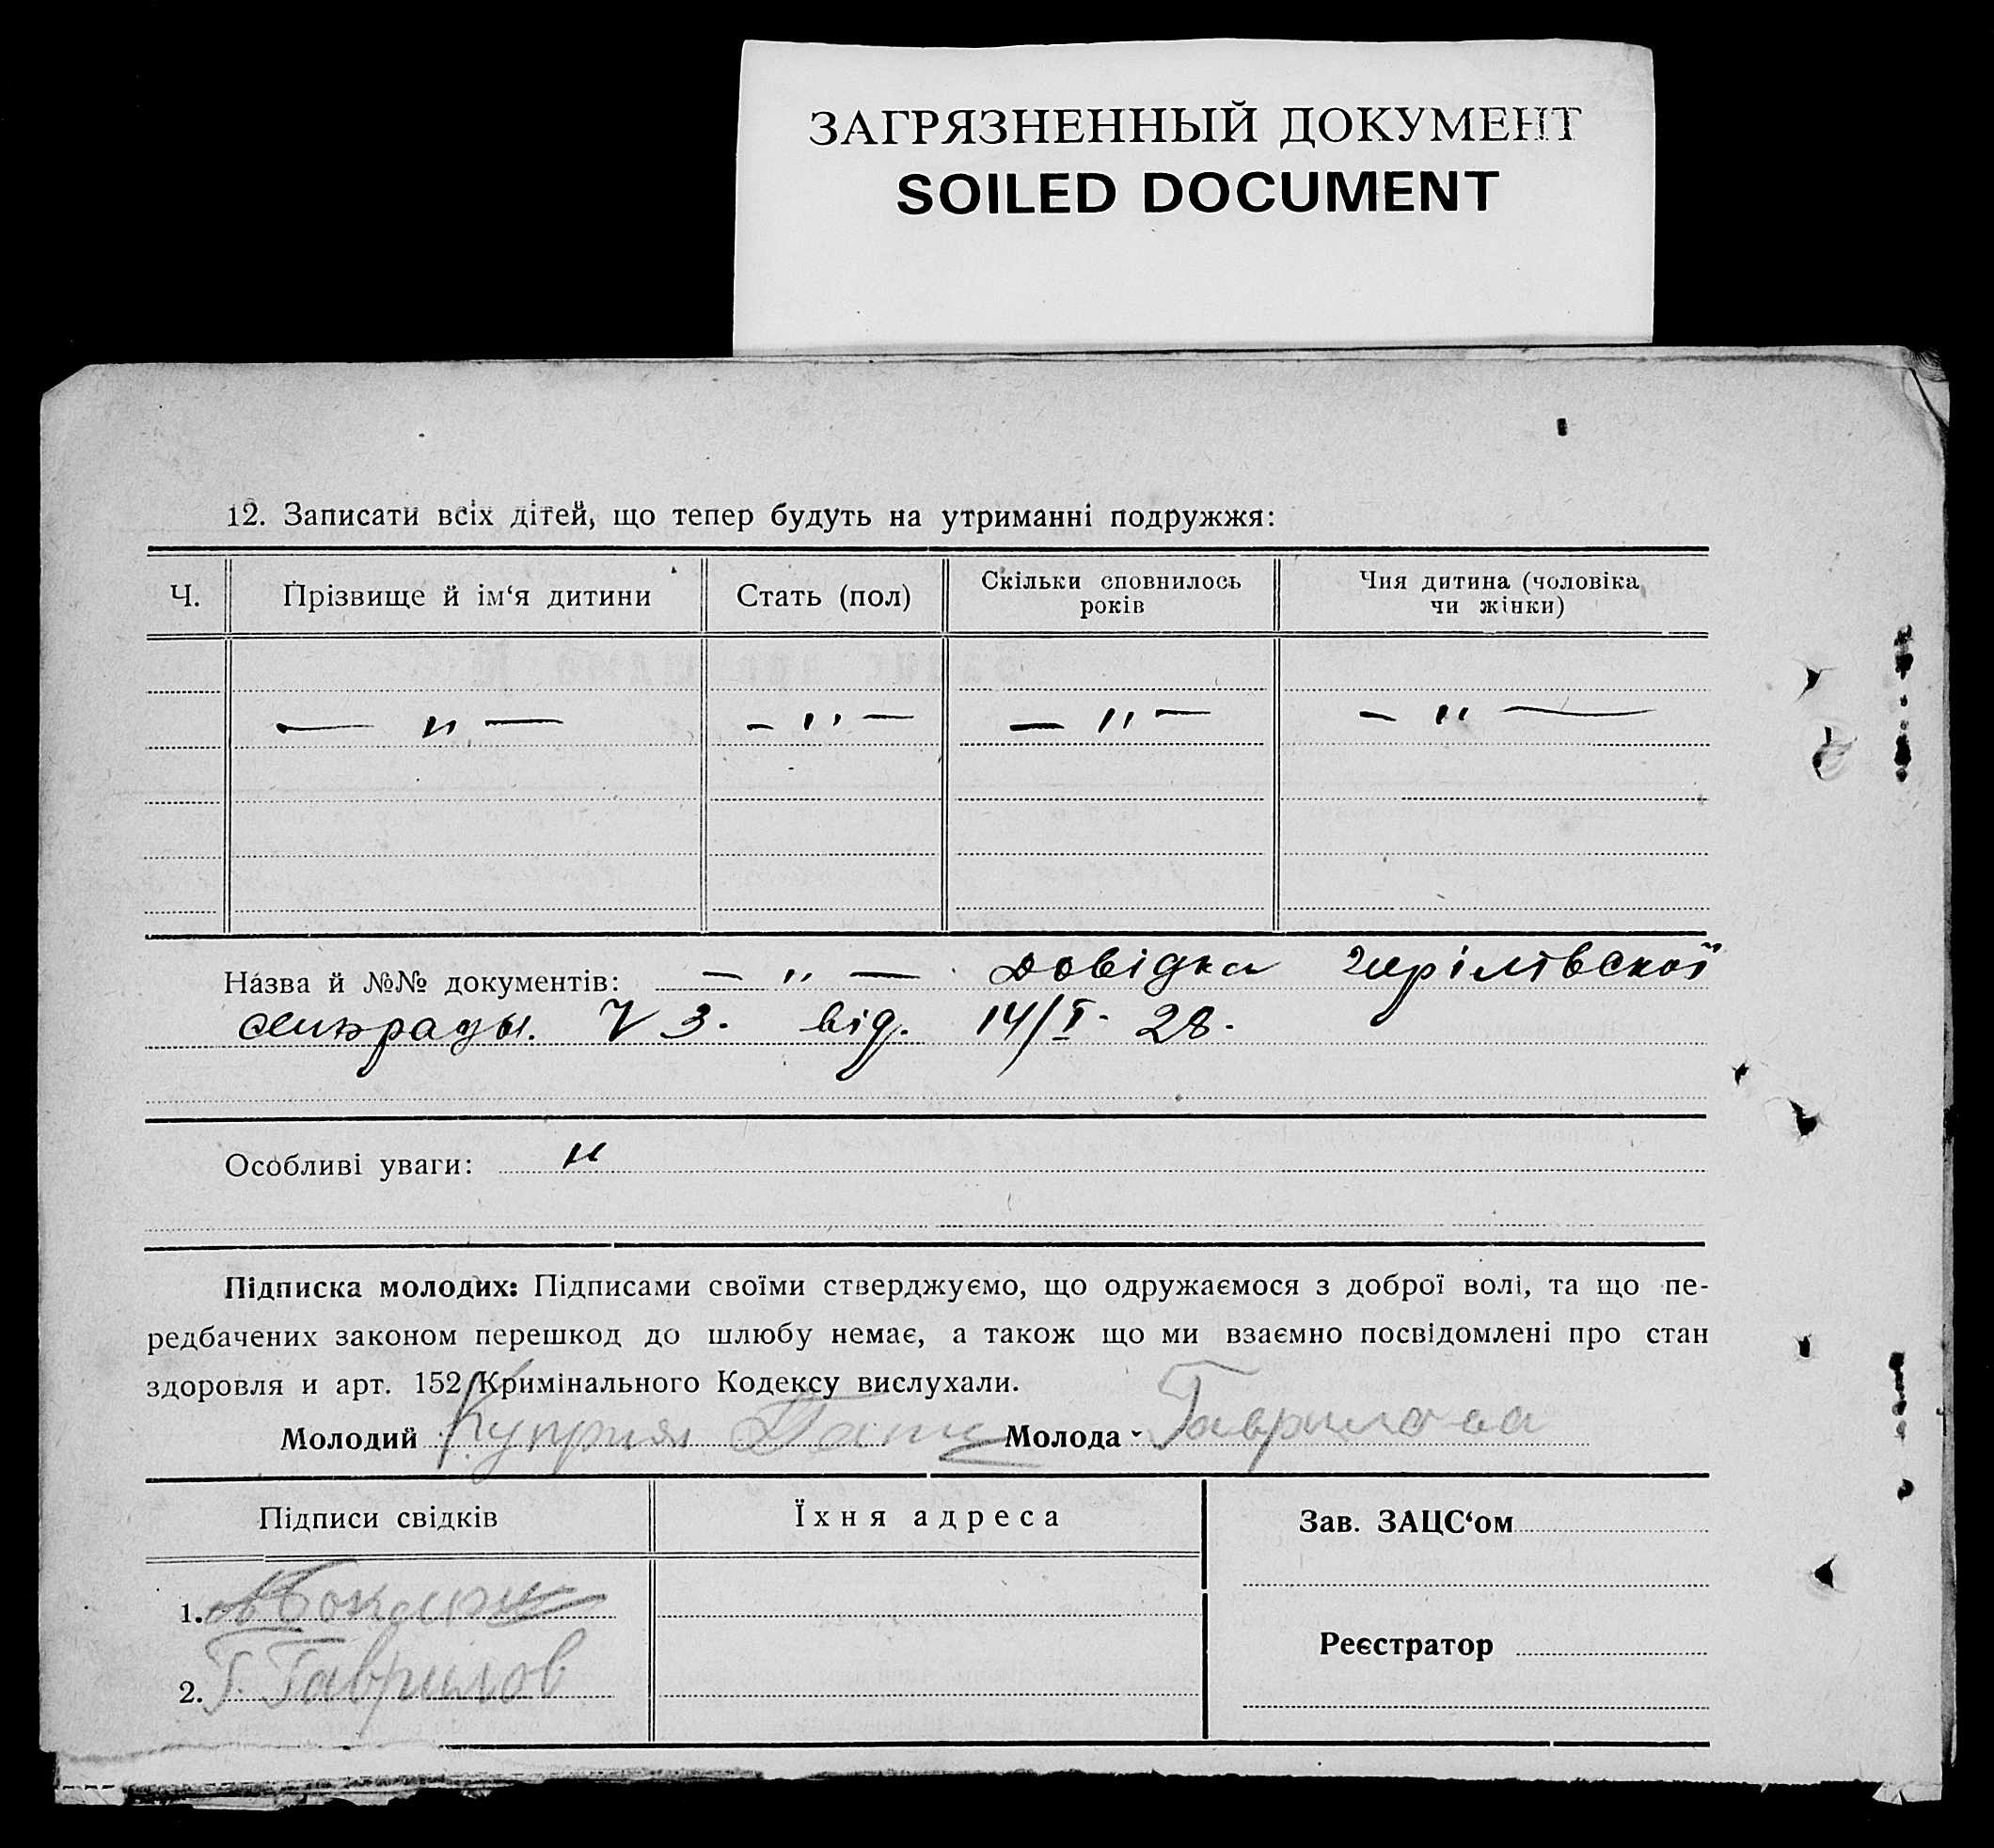 ЗАГРЯЗНЕННЫЙ ДОКУМЕНТ
SOILED DOCUMENT
12. Записати всіх дітей, що тепер будуть на утриманні подружжя:
Ч. Прізвище й ім‘я дитини Стать (пол) Скільки сповнилось років Чия дитина (чоловіка чи жінки)
— " — — " — — " — — " —
Назва й №№ документів: — " — довідка
від. 14/I - 28.
Особливі уваги: "
Підписка молодих: Підписами своїми стверджуємо, що одружаємося з доброї волі, та що пе-
редбачених законом перешкод до шлюбу немає, а також що ми взаємно посвідомлені про стан
здоровля и арт. 152 Кримінального Кодексу вислухали.
Молодий Куприян Молода - Гаврилова
Підписи свідків Їхня адреса Зав. ЗАЦС‘ом
1.
Реєстратор
2. Г. Гаврилов